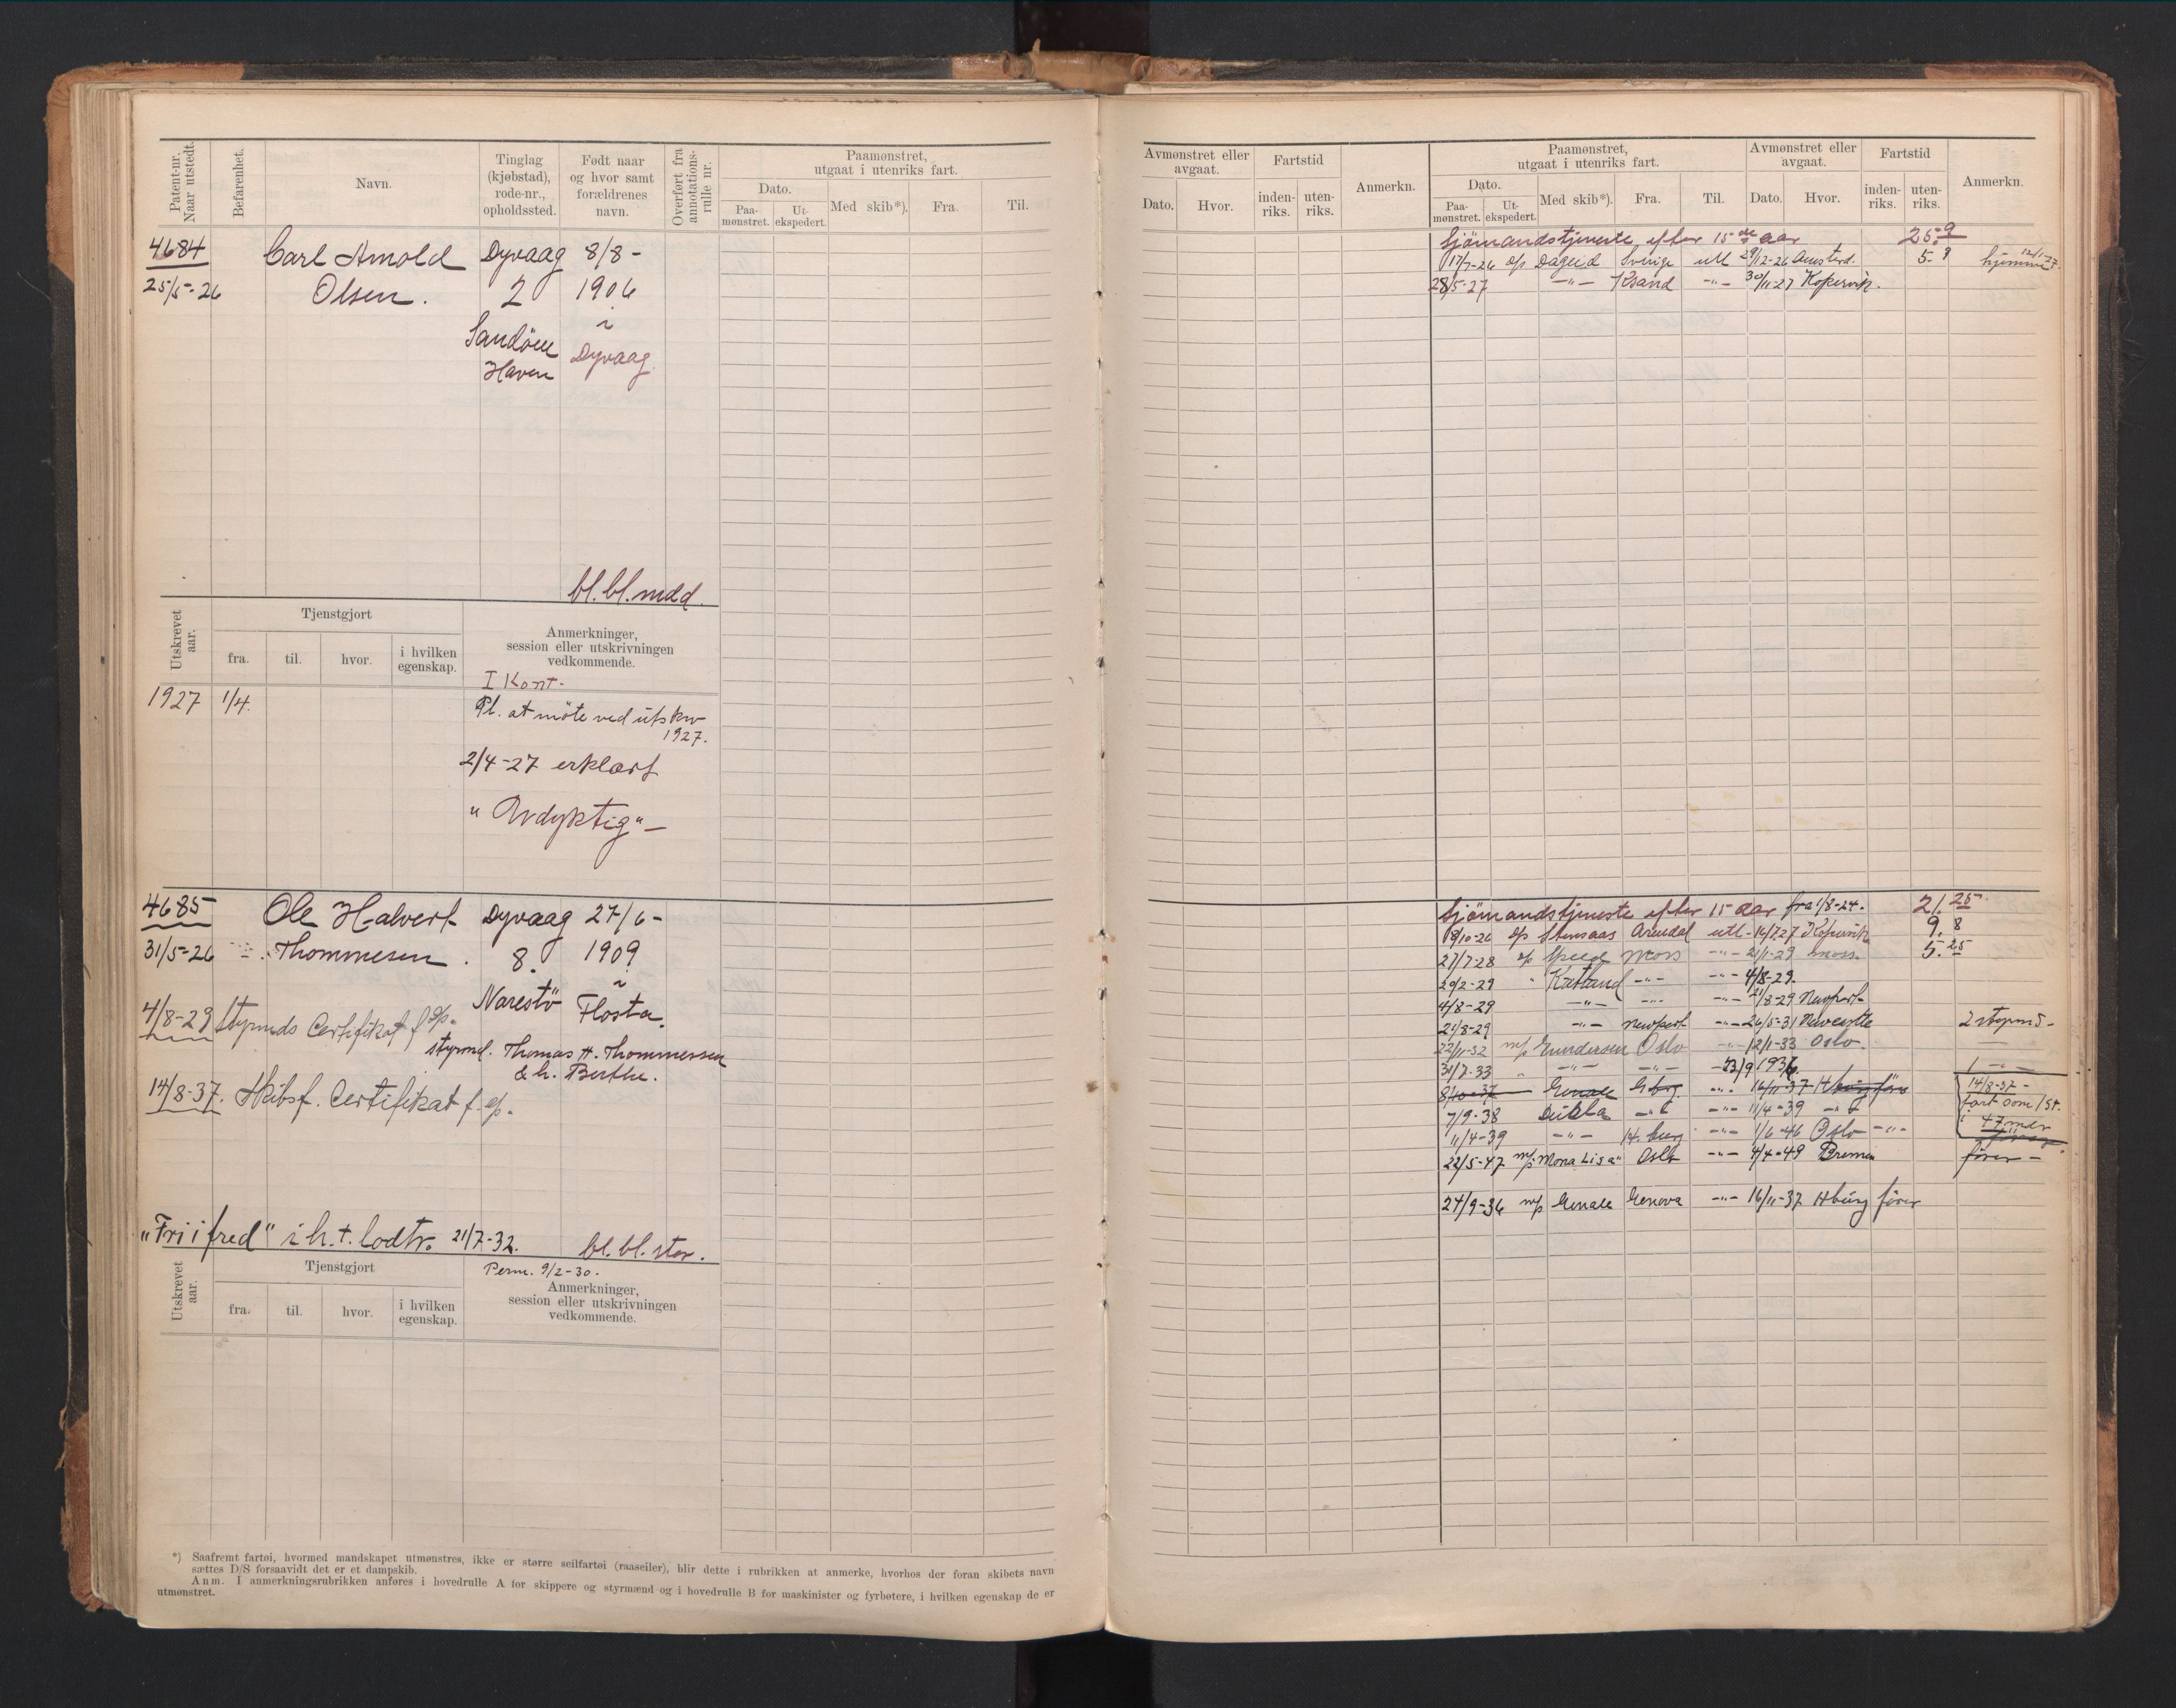 Patent-nr. Naar utstedt.
Befarenhet.
Navn.
Tinglag (kjøbstad), rode-nr., opholdssted.
Født naar og hvor samt forældrenes navn.
Overført fra annotations-rulle nr.
Paamønstret, utgaat i utenriks fart.
Dato.
Paa-mønstret.
Ut-ekspedert.
Med skib*).
Fra.
Til.
4684
25/5-26
Carl Arnold
Olsen.
Dyvaag
2
Sandöen
Haven
8/8-
1906
i
Dyvaag
bl.bl.mdd.
Utskrevet aar.
Tjenstgjort
fra.
til.
hvor.
i hvilken egenskap.
Anmerkninger, session eller utskrivningen vedkommende.
1927 1/4.
I Kont-
Pl. at möte ved utskr
1927.
2/4-27 erklært
"Udyktig"-
4685
31/5-26
Ole Halvert
Thommesen.
Dyvaag
8.
Narestö
27/6-
1909
i
Flosta.
4/8-29 Styrmds Certifikat f
styrmd. Thomas H. Thommessen
& h. Berthe.
14/8-37. Skibsf. Certifikat f.
"Fri i fred" i h.t. lodtr. 21/7-32.
bl. bl. stor.
Utskrevet aar.
Tjenstgjort
fra.
til.
hvor.
i hvilken egenskap.
Perm. 9/2-30.
Anmerkninger, session eller utskrivningen vedkommende.
*) Saafremt fartøi, hvormed mandskapet utmønstres, ikke er større seilfartøi (raaseiler), blir dette i rubrikken at anmerke, hvorhos der foran skibets navn
sættes D/S forsaavidt det er et dampskib.
Anm. I anmerkningsrubrikken anføres i hovedrulle A for skippere og styrmænd og i hovedrulle B for maskinister og fyrbøtere, i hvilken egenskap de er
utmønstret.
Avmønstret eller avgaat.
Dato.
Hvor.
Fartstid
inden-riks.
uten-riks.
Anmerkn.
Paamønstret, utgaat i utenriks fart.
Dato.
Paa-mønstret.
Ut-ekspedert.
Med skib*).
Fra.
Til.
Avmønstret eller avgaat.
Dato.
Hvor.
Fartstid
inden-riks.
uten-riks.
Anmerkn.
Sjömandstjeneste efter 15de aar 25.9
17/7-26 Dageid Sverige utl 29/12-26 Amsterd. 5.9 hjemme
28/5-27 -"- Ksand -"- 30/11-27 Kopervik.
Sjömandstjeneste efter 15 aar fra 1/8-24. 21.25
Stensaas Arendal utl- 14/7.27 Kopervik 9.8
27/7-28 Speed Moss -"- 2/1-29 Moss. 5.25
20/2-29 " Katland -"- -"- 4/8-29.
4/8-29 -"- -"- -"- 21/8-29 Newport
21/8-29 -"- Newport -"- 26/5-31 Newcastle 2 styrmd-
22/11-32 m/s Gundersen Oslo -"- 12/11-33 Oslo. -
31/7-33 " -"- -"- 23/9 1936. 1 -"-
8/10-37 Genale Gborg. -"- 16/11-37 Hburg förer 14/8-37-
7/9-38 Dukla -"- -"- 11/4-39 -"- fart som 1 St.
11/4-39 -"- H.burg -"- 1/6-46 Oslo -"- 47 mdr
22/5-47 m/s "Mona Lisa" Oslo -"- 4/4-49 Bremen förer-
24/9-36 m/s Genale Genova -"- 16/11-37 Hburg förer